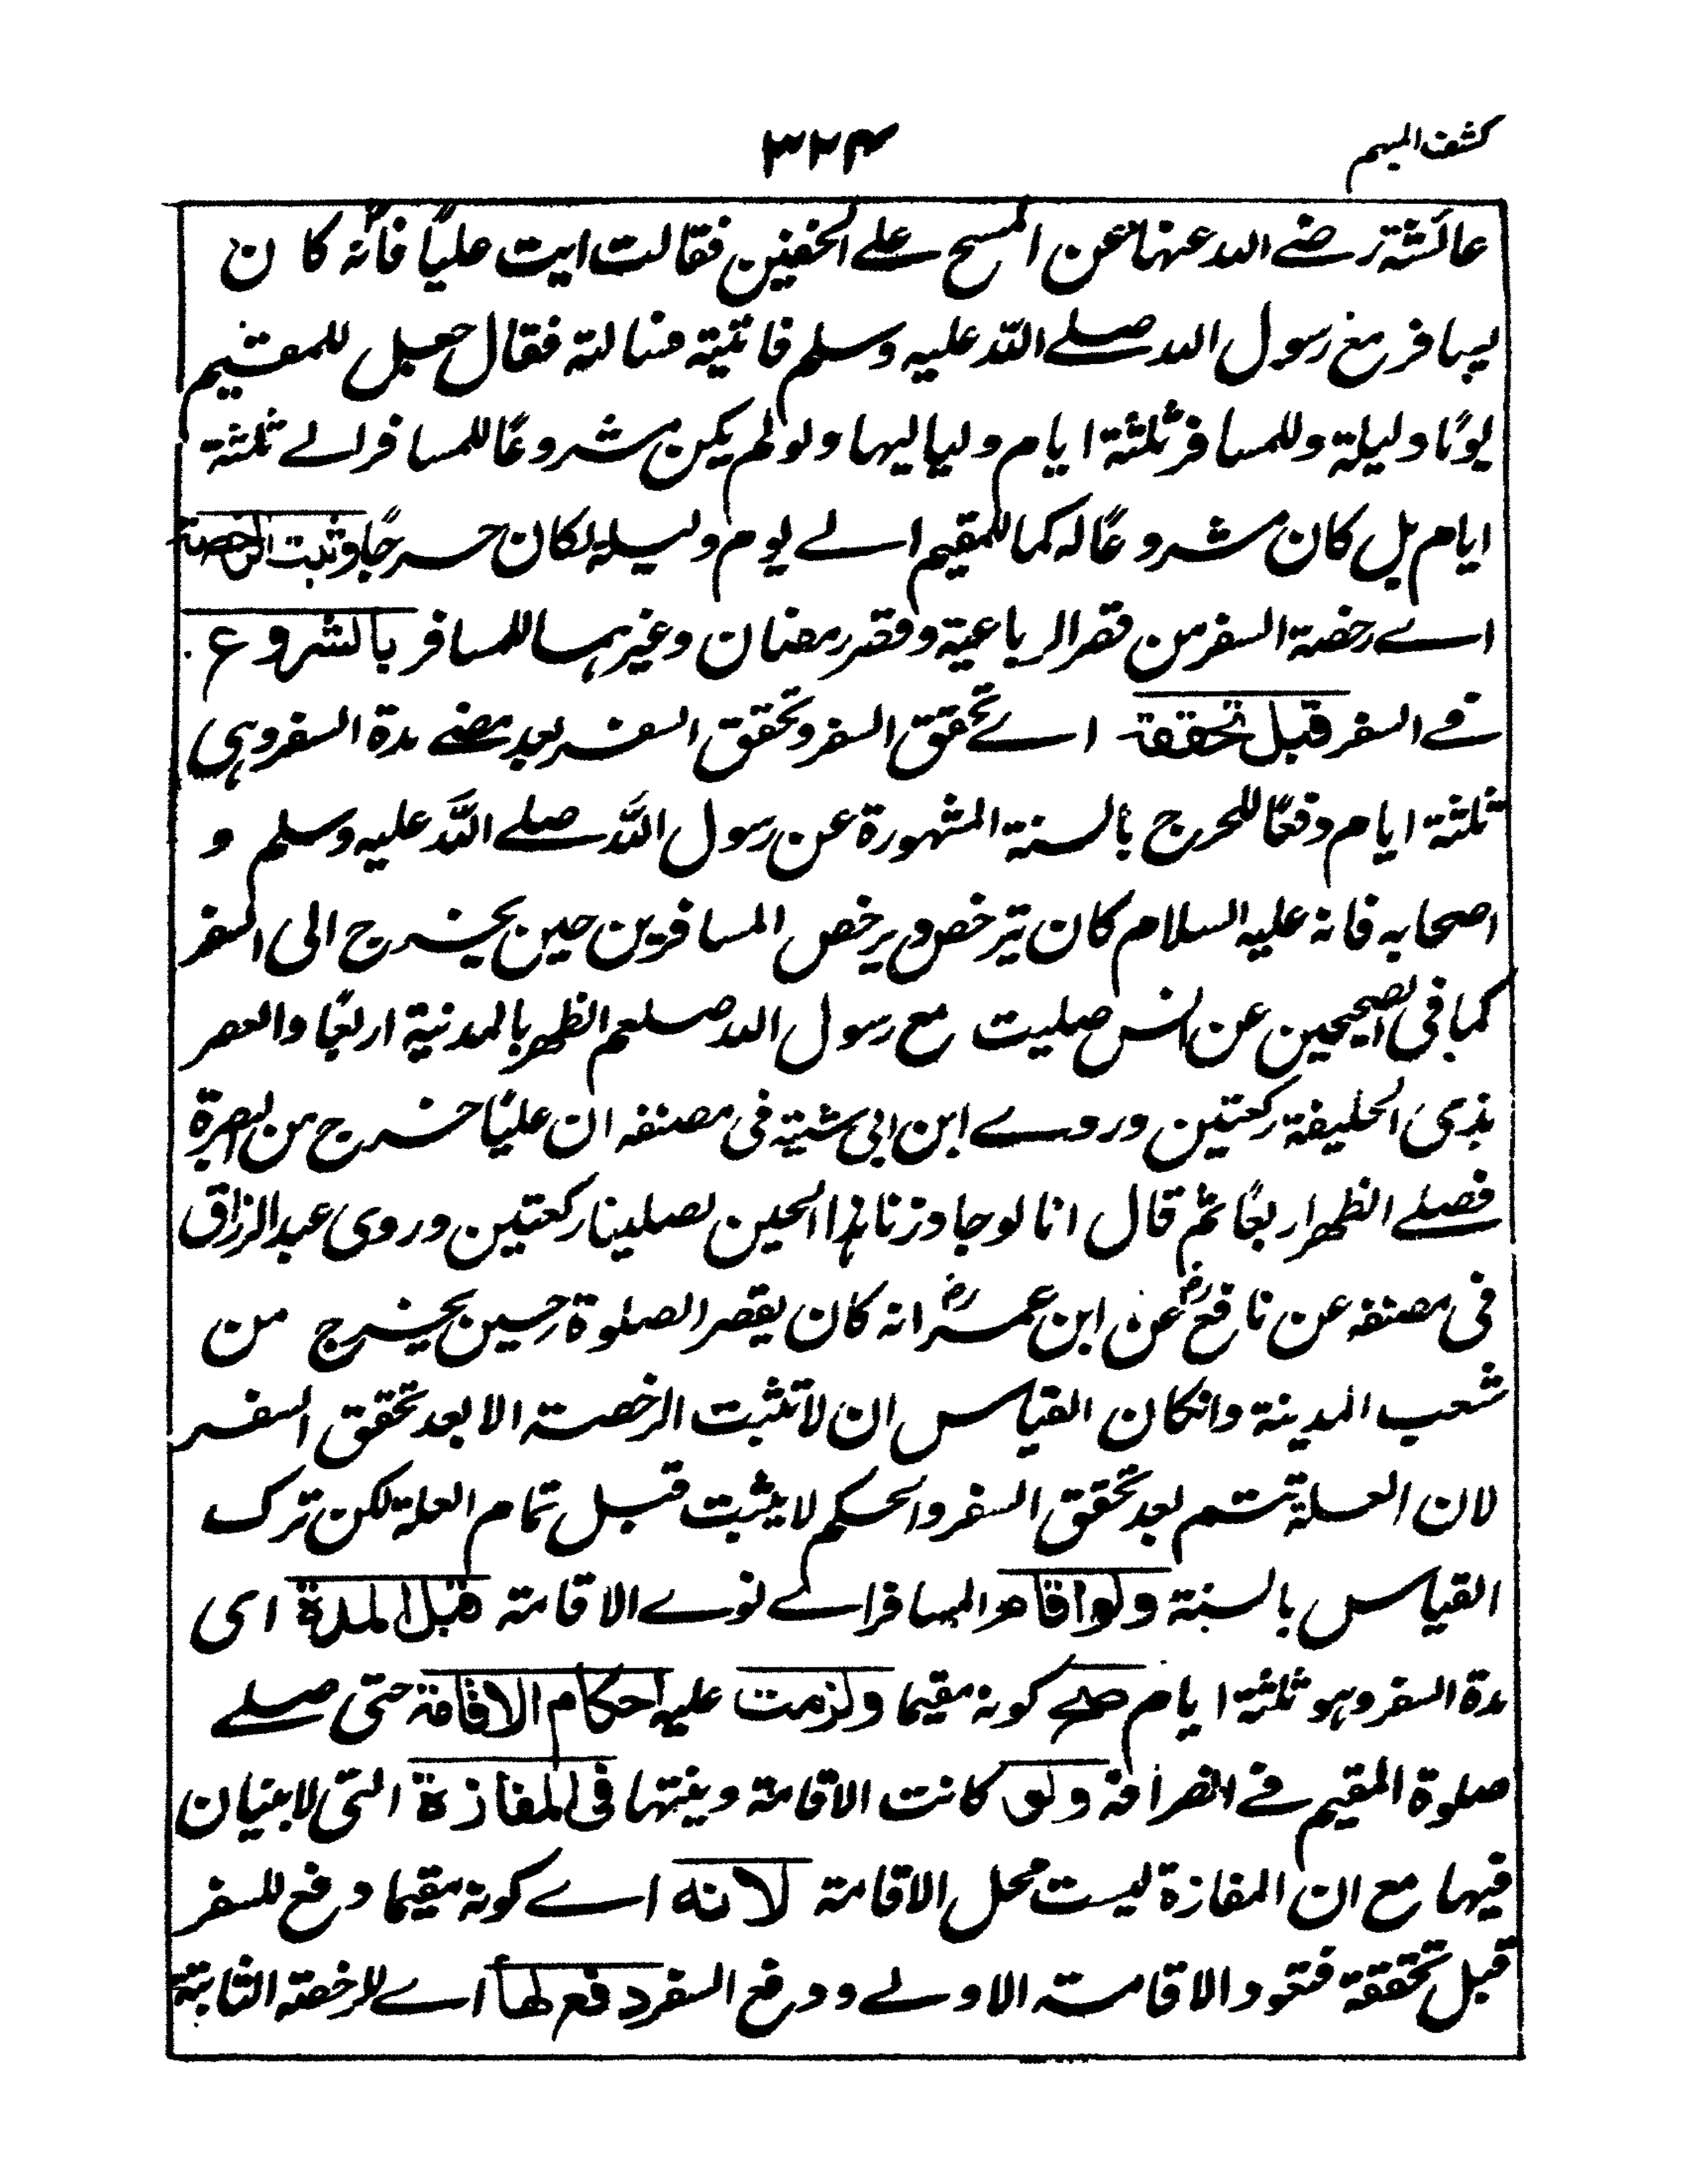 كشف المبهم
٣٢٤
عائشة رضے الله عنها عن المسح علے الخفين فقالت ايت عليًا فانه كان
يسافر مع رسول الله صلے الله عليه وسلم فاتيته فسالته فقال جعل للمقيم
يومًا وليلة وللمسافر ثلثة ايام ولياليها ولو لم يكن مشروعًا للمسافر الے ثلثة
ايام بل كان مشروعًا له كما للمقيم الے يوم وليلة لكان حرجًا وثبت الرخصة
اے رخصة السفر من قصر الرباعية وفطر رمضان وغيرهما للمسافر بالشروع
فے السفر قبل تحققه اے تحقق السفر وتحقق السفر بعد مضے مدة السفر وهى
ثلثة ايام دفعًا للحرج بالسنة المشهورة عن رسول الله صلے الله عليه وسلم و
اصحابه فانه عليه السلام كان يترخص ويرخص المسافرين حين يخرج الى السفر
كما فى الصحيحين عن انس صليت مع رسول الله صلعم الظهر بالمدينة اربعًا والعصر
بذى الحليفة ركعتين وروے ابن ابى شيبة فى مصنفه ان عليًا خرج من البصرة
فصلے الظهر اربعًا ثم قال انا لو جاوزنا هذا الحين لصلينا ركعتين وروى عبد الرزاق
فى مصنفه عن نافع رض عن ابن عمر رض انه كان يقصر الصلوة حين يخرج من
شعب المدينة وانكان القياس ان لا تثبت الرخصة الا بعد تحقق السفر
لان العلة تتم بعد تحقق السفر والحكم لا يثبت قبل تمام العلة لكن ترك
القياس بالسنة ولو اقام المسافر اے نوے الاقامة قبل المدة اى
مدة السفر وهو ثلثة ايام صح كونه مقيما ولزمت عليه احكام الاقامة حتى صلے
صلوة المقيم فے انصرافه ولو كانت الاقامة ونيتها فى المفازة التى لا بنيان
فيها مع ان المفازة ليست محل الاقامة لانه اے كونه مقيما دفع للسفر
قبل تحققه فتعود الاقامة الاولے ودفع السفر دفع لها اے للرخصة الثابتة